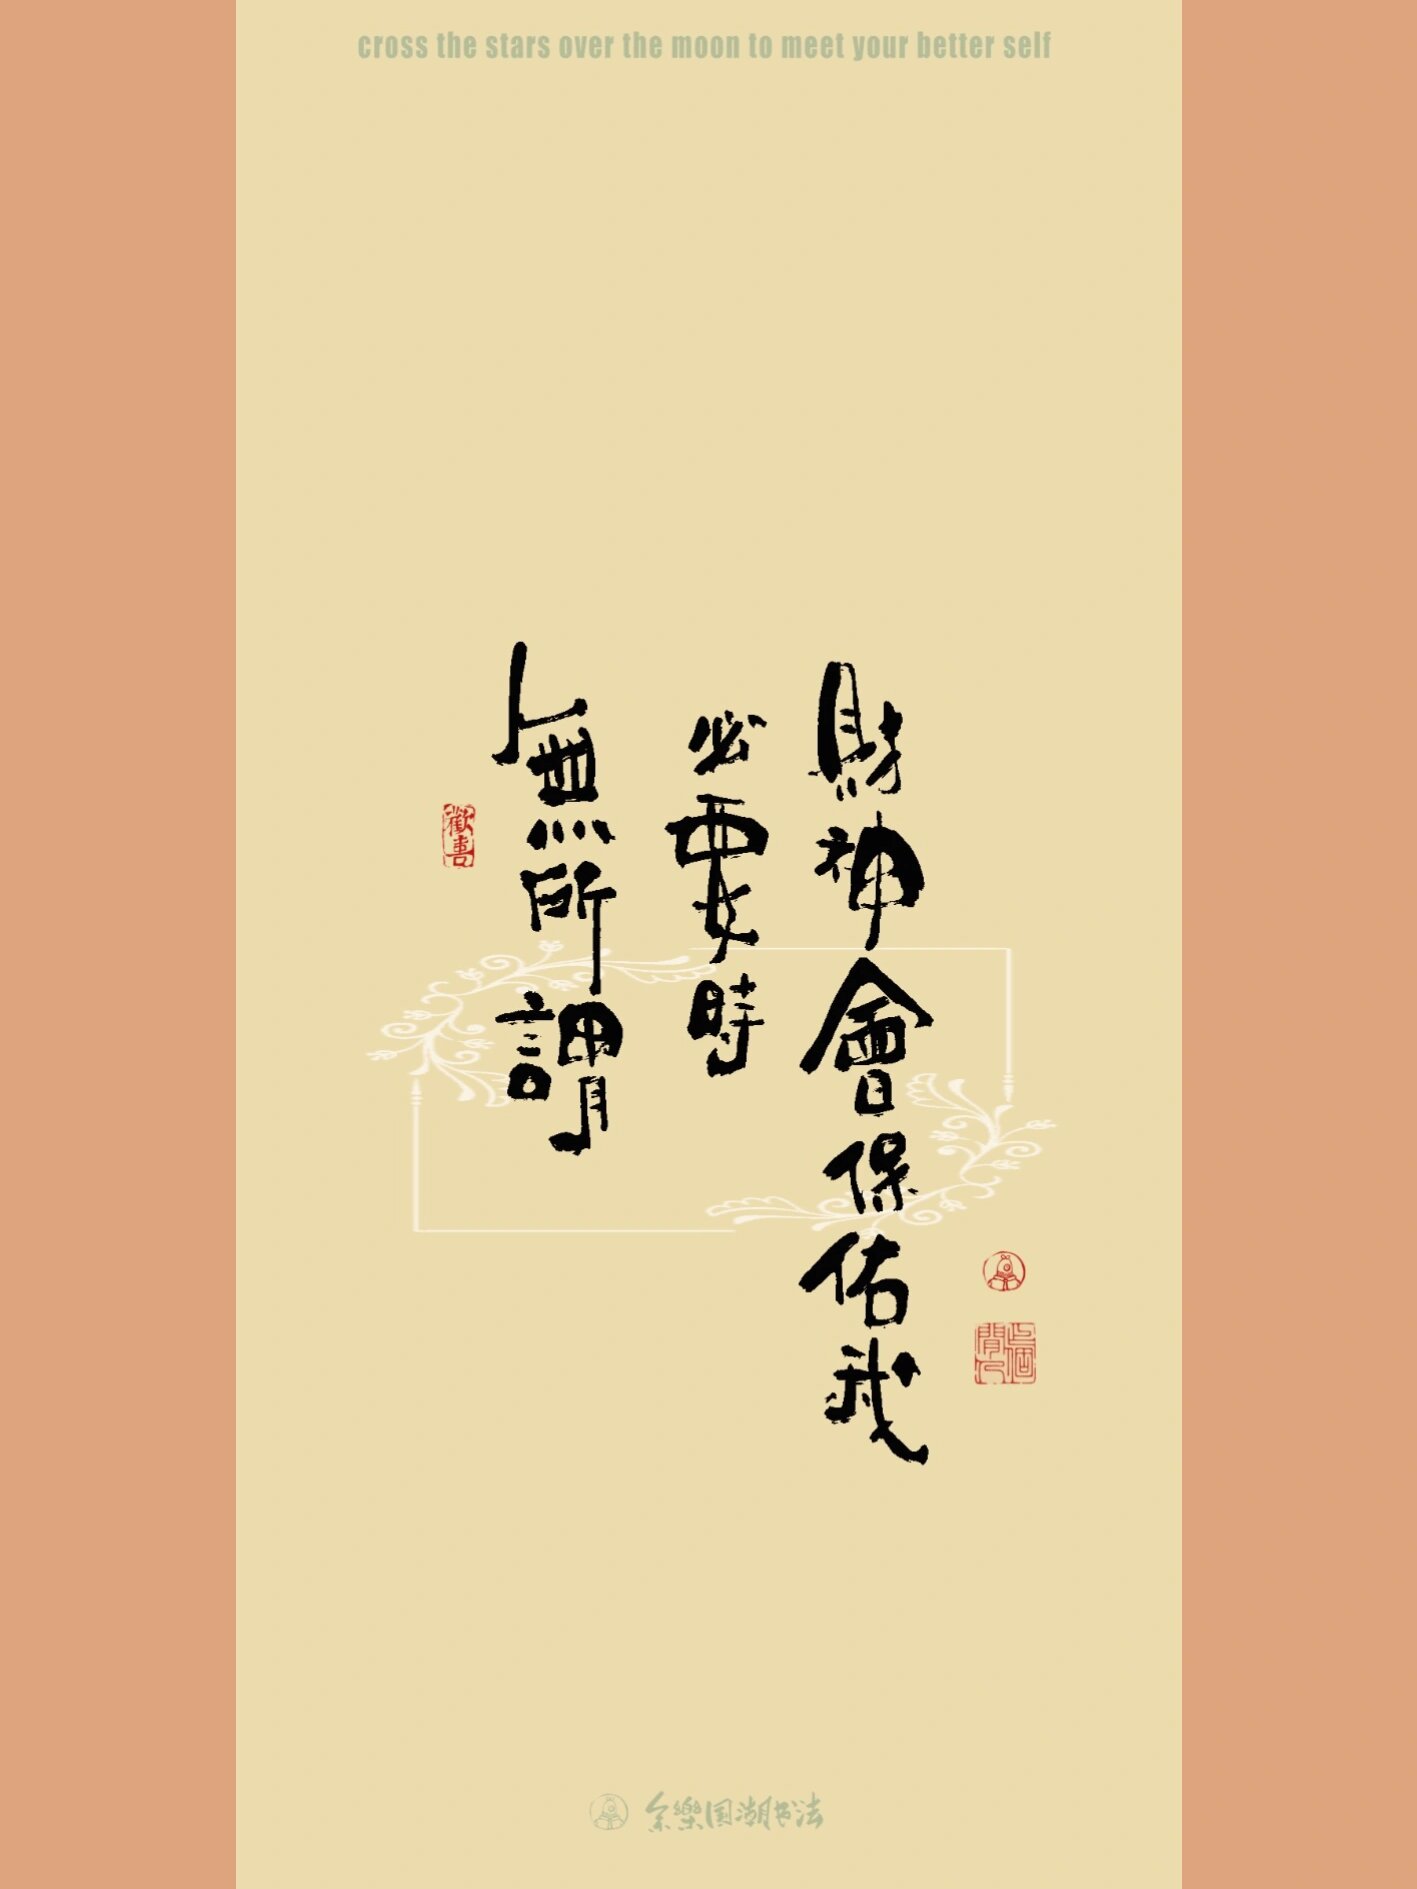 cross the stars over the moon to meet your better self
財神會保佑我
必要時
無所謂
歡喜